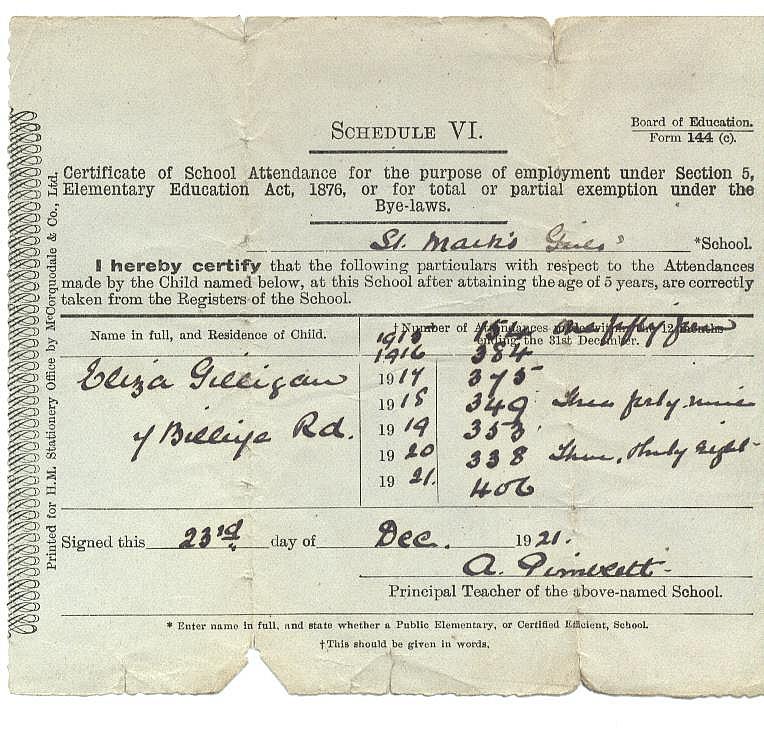 Board of Education.
Form 144 (c).
SCHEDULE VI.
Certificate of School Attendance for the purpose of employment under Section 5,
Elementary Education Act, 1876, or for total or partial exemption under the
Bye-laws.
St. Mark's Girls' *School.
I hereby certify that the following particulars with respect to the Attendances
made by the Child named below, at this School after attaining the age of 5 years, are correctly
taken from the Registers of the School.
Name in full, and Residence of Child.
†Number of Attendances made within the 12 months
ending the 31st December.
1915 154 One fifty four
1916 384
Eliza Gilligan
1917 375
1918 349 Three forty nine
1919 353
Rd.
1920 338 Three, thirty eight
1921. 406
Signed this 23rd day of Dec. 1921.
A.
Principal Teacher of the above-named School.
* Enter name in full, and state whether a Public Elementary, or Certified Efficient, School.
†This should be given in words.
Printed for H.M. Stationery Office by McCorquodale & Co., Ltd.